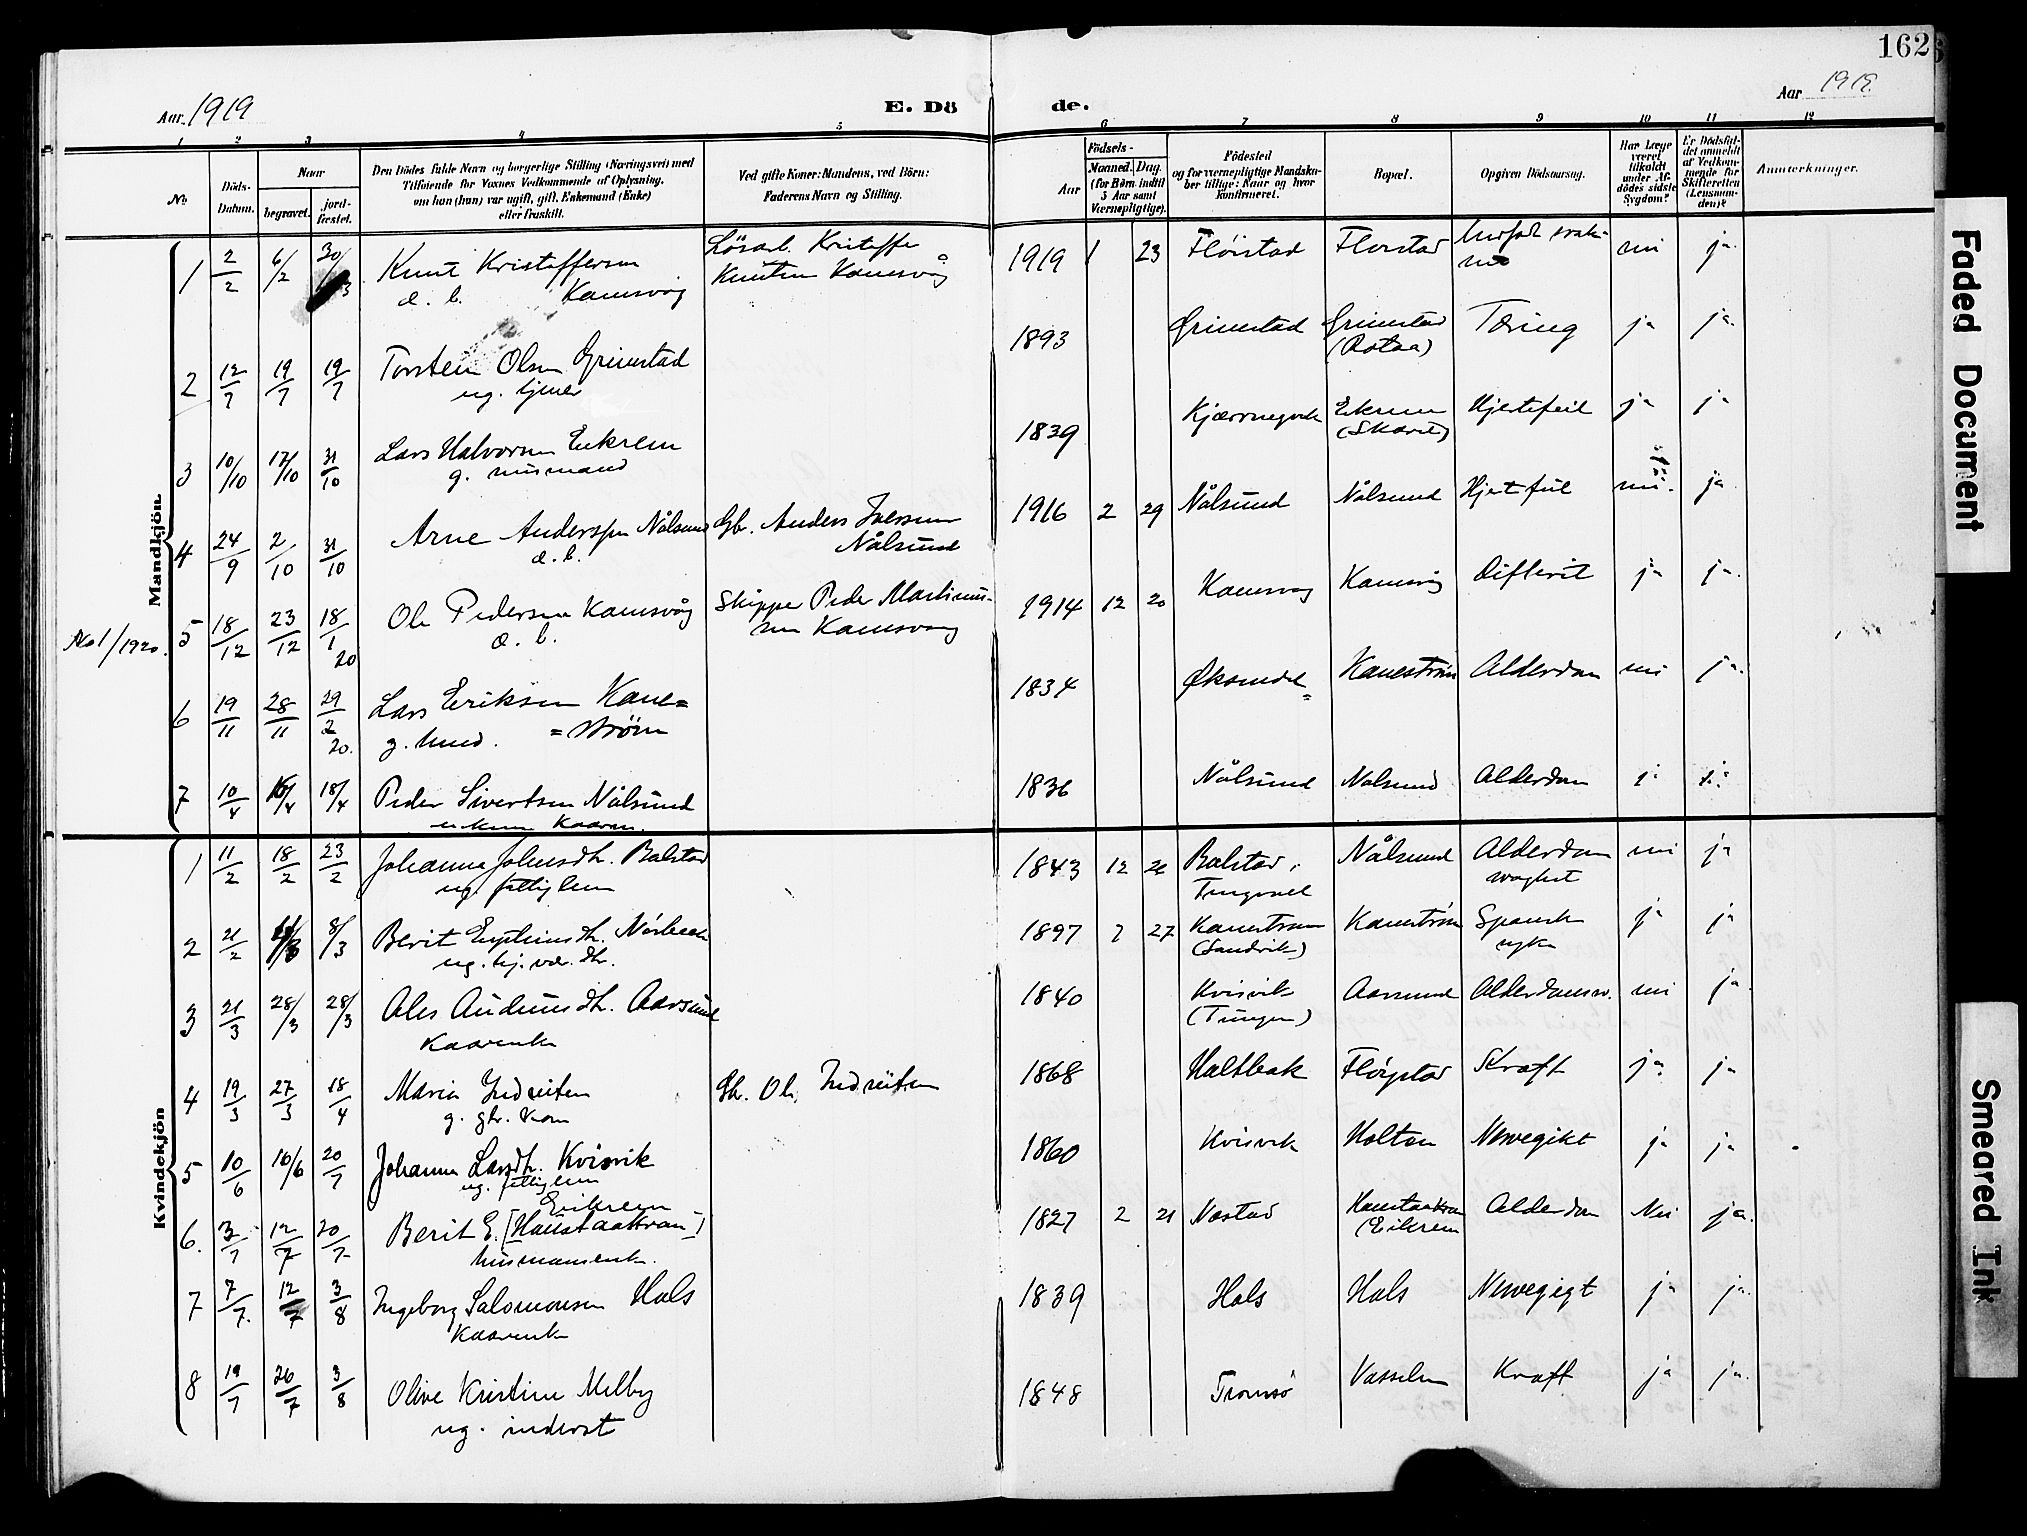 162
Aar 1919
E. Dö de.
Aar 1919.
1 2 3 4 5 6 7 8 9 10 11 12
No.
Döds-Datum.
Naar
begravet.
jord-fæstet.
Den Dödes fulde Navn og borgerlige Stilling (Næringsvei) med
Tilföiende for Voxnes Vedkommende af Oplysning,
om han (hun) var ugift, gift, Enkemand (Enke)
eller fraskilt.
Ved gifte Koner: Mandens, ved Börn:
Faderens Navn og Stilling.
Födsels-
Aar
Maaned. Dag.
(for Børn indtil
5 Aar samt
Værnepligtige).
Födested
og for værnepligtige Mandska-
ber tillige: Naar og hvor
konfirmeret.
Bopæl.
Opgiven Dödsaarsag.
Har Læge
været
tilkaldt
under Af-
dødes sidste
Sygdom?
Er Dödsfal-
det anmeldt
af Vedkom-
mende for
Skifteretten
(Lensman-
den)?
Anmærkninger.
Mandkjön
1 2/2 6/2 30/3 Knut Kristoffersen Løsarb. Kristoffer 1919 1 23 Fløistad Floistad ja.
d. b. Kamsvåg Knutsen Kamsvåg
2 12/7 19/7 19/7 Torsten Olsen Grimstad 1893 Grimstad Grimstad Tæring ja ja.
ug. tjener (Rotaa)
3 10/10 17/10 31/10 Lars Halvorsen Eikrem 1839 Eikrem Hjertefeil ja ja
g. husmand (Skaret)
4 24/9 2/10 31/10 Arne Anderssen Nålsund Gbr. Anders Iversen 1916 2 29 Nålsund Nålsund Hjertefeil nei. ja
d. b. Nålsund
No 1/1920. 5 18/12 23/12 18/1 20 Ole Pedersen Kamsvåg Skipper Peder Martinus- 1914 12 20 Kamsvåg Kamsvåg Difterit ja ja.
d. b. sen Kamsvåg
6 19/11 28/11 29/2 20. Lars Eriksen Kane= 1834 Øksendal Kanestrøm Alderdom nei ja.
g. =strøm
7 10/4 16/4 18/4 Peder Sivertsen Nålsund 1836 Nålsund Nålsund Alderdom
Kvindekjön
1 11/2 18/2 23/2 Johanna Johnsdtr. Balstad 1843 12 26 Balstad i Nålsund Alderdom nei ja
ug. fattiglem Tingvoll
2 21/2 8/3 Berit 1897 7 27 Kanestrøm Kanestrøm Spansk ja ja
ug. (Sandvik) syke
3 21/3 28/3 28/3 Ales Audunsdtr. Aarsund 1840 Kvisvik Aarsund Alderdomsv. nei ja.
Kaarenke (Tungen)
4 19/3 27/3 18/4 Maria Indreiten Gbr. Ole Indreiten 1868 Haltbak Fløistad Kræft ja. ja
g. gbr. kone
5 10/6 16/6 20/7 Johanna Larsdtr. Kvisvik 1860 Kvisvik Holten Nervegikt ja ja
ug. fattiglem
6. 3/7 12/7 20/7 Berit E. [Hanstaakvam] Eikrem 1827 2 21 Næstad Hanstaakvam Alderdom Nei ja.
husmansenke. (Eikrem
7 7/7. 12/7 3/8 Ingeborg Salomonsen Hals 1839 Hals Hals Nervegigt ja ja.
Kaarenke
8 19/7 26/7 3/8 Olive Kristine Melby 1848 Tromsø Kræft ja ja.
ug. inderst
Faded Document
Smeared Ink